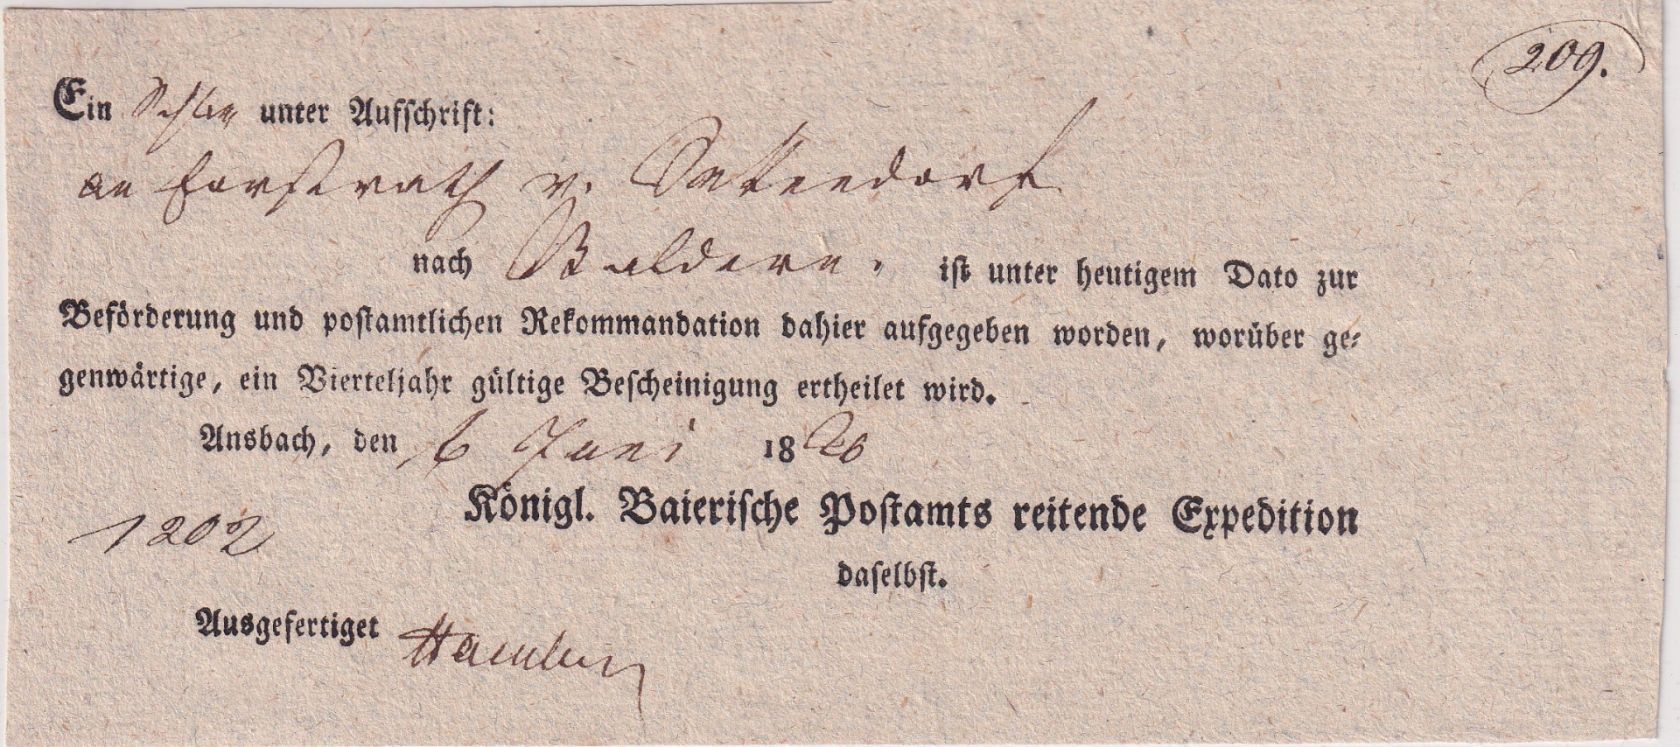 209.
Ein unter Aufschrift:
an Forstrath v.
nach Baldern. ist unter heutigem Dato zur
Beförderung und postamtlichen Rekommandation dahier aufgegeben worden, worüber ge-
genwärtige, ein Vierteljahr gültige Bescheinigung ertheilet wird.
Ansbach, den 6 Juni 1820
Königl. Baierische Postamts reitende Expedition
1202
daselbst.
Ausgefertiget